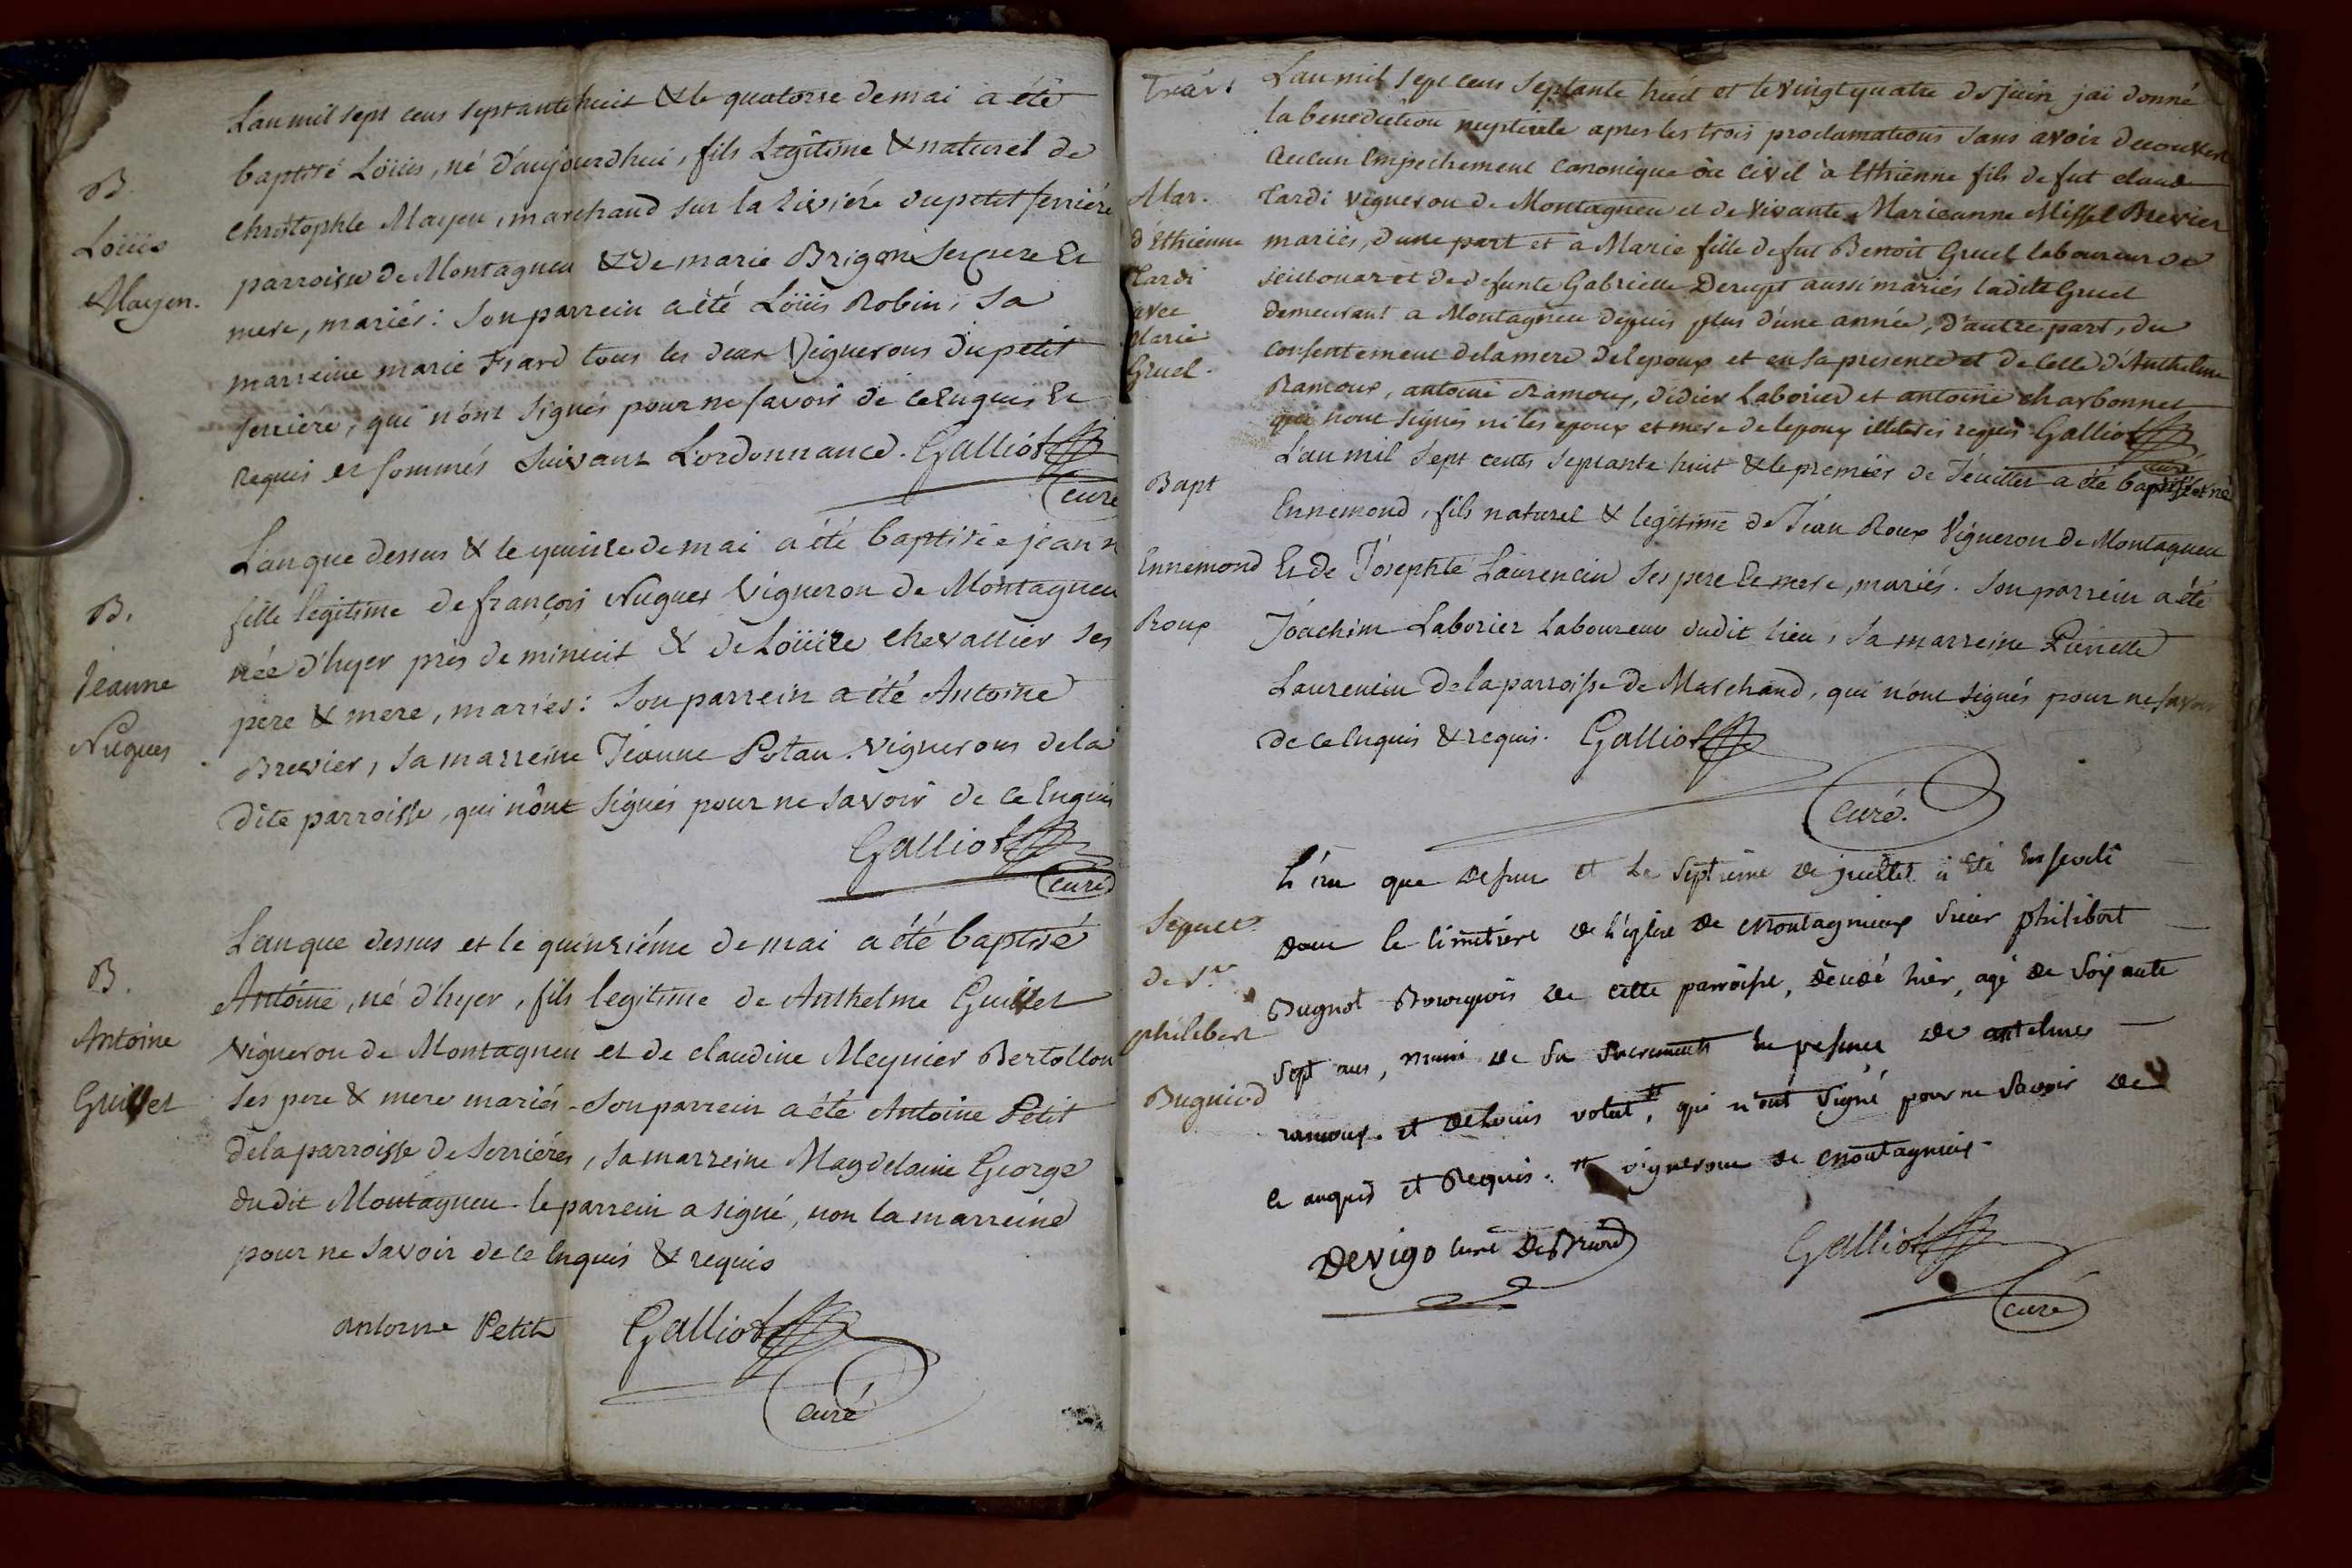 L'an mil sept cens septante huit & le quatorse de mai a été
baptisé Loüis, né d'aujourdhui, fils Légitime & naturel de
christophle Mayen, marchand sur la riviére du petit serriére
parroisse de Montagneu & de marie Brigon ses pere Et
mere, mariés: Son parrein a été Loüis Robin, sa
marreine marie Frard tous les deux Vignerons du petit
serriére, qui n'ont signés pour ne savoir de ce Enquis Et
Requis et sommés suivant L'ordonnance. Galliot
curé
B.
Loüis
Mayen.
L'an que dessus & le quinze de mai a été baptisée jeann
fille légitime de françois Nugues Vigneron de Montagneu
née d'hyer près de minuit & de Loüize chevallier ses
pere & mere, mariés: Son parrein a été Antoine
Brevier, sa marreine Jeanne Potau. vignerons de la
dite parroisse, qui n'ont signés pour ne savoir de ce Enquis
Galliot
curé
B.
Jeanne
Nugues
L'an que dessus et le quinziéme de mai a été baptisé
Antoine, né d'hyer, fils legitime de Anthelme Guillet
vigneron de Montagneu et de claudine Meynier Bertollon
ses pere & mere mariés. Son parrein a été Antoine Petit
de la parroisse de Serriéres, sa marreine Magdelaine George
du dit Montagneu. le parrein a signé, non la marreine
pour ne savoir de ce Enquis & requis
antoine Petit Galliot
curé
B.
Antoine
Guillet
L'an mil sept cens septante huit et le vingt quatre de juin jai donné
la benediction nuptiale apres les trois proclamations sans avoir decouvert
aucun Empechement canonique ou civil à Ethienne fils de fut claude
Tardi vigneron de Montagneu et de vivante Marieanne Missel Brevier
mariés, d'une part et a Marie fille de fut Benoit Gruel laboureur de
seillonar et de defunte Gabrielle Derupt aussi mariés ladite Gruel
demeurant a Montagneu depuis plus d'une année, d'autre part, du
consentement de la mere de lepoux et en sa presence et de celle d'Anthelme
Ramoux, antoine Ramoux, didier Laborier et antoine charbonnet
qui nont signés ni les epoux et mere de lepoux illiterés requis Galliot
curé
Mar.
d'Ethienne
Tardi
avec
Marie
Gruel.
L'an mil sept cents septante huit & le premier de Jeuillet a été baptisé et né
Ennemond, fils naturel & legitime de Jean Roux Vigneron de Montagneu
Et de Josephte Laurencin ses pere Et mere, mariés. Son parrein a été
Joachim Laborier Laboureur dudit lieu, sa marreine Pierrette
Laurencin de la parroisse de Marchand, qui n'ont signés pour ne savoir
de ce Enquis & requis. Galliot
curé.
Bapt
Ennemond
Roux
L'an que dessus et le septieme de juillet a été Enseveli
dans le cimetiere de l'église de Montagnieux sieur philibert
Bugnot Bourgeois de cette parroisse, décédé hier, agé de soixante
sept ans, muni de ses sacrements En presence de antelme
ramoux. et de Louis volut, qui n'ont signé pour ne savoir de
ce anquis et Requis. vignerons de Montagnieux.
Devigo curé de Briord Galliot
curé
Sepult.
de Sr.
philibert
Bugniod